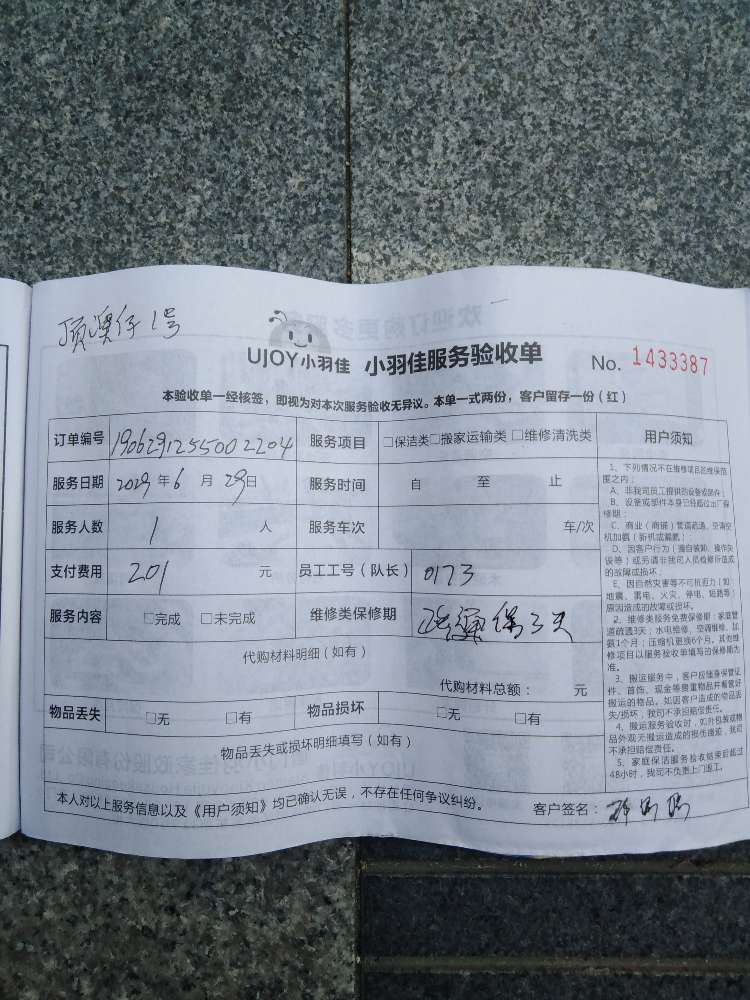 顶澳仔1号
UJOY小羽佳 小羽佳服务验收单 No. 1433387
本验收单一经核签，即视为对本次服务验收无异议。本单一式两份，客户留存一份（红）
订单编号 1906291255002204 服务项目 □保洁类□搬家运输类 □维修清洗类
服务日期 2029年6月29日 服务时间 自 至 止
服务人数 1 人 服务车次 车/次
支付费用 201 元 员工工号（队长） 0173
服务内容 □完成 □未完成 维修类保修期 疏通保3天
代购材料明细（如有）
代购材料总额： 元
物品丢失 □无 □有 物品损坏 □无 □有
物品丢失或损坏明细填写（如有）
本人对以上服务信息以及《用户须知》均已确认无误，不存在任何争议纠纷。 客户签名：
用户须知
1、下列情况不在维修项目的维保范
围之内：
A、非我司员工提供的设备或部件；
B、设备或部件本身已经超过出厂保
修期；
C、商业（商铺）管道疏通、空调空
机加氨（新机或漏氨）；
D、因客户行为（擅自装卸、操作失
误等）或另请非我司人员检修所造成
的故障或损坏；
E、因自然灾害等不可抗拒力（如
地震、雷电、火灾、停电、短路等）
原因造成的故障或损坏。
2、维修类服务免费保修期：家庭管
道疏通3天；水电维修、空调维修、加
氨1个月；压缩机更换6个月。其他维
修项目以服务验收单填写的保修期为
准。
3、搬运服务中，客户应随身保管证
件、首饰、现金等贵重物品并看管好
搬运的物品。如因客户造成的物品丢
失/损坏，我司不承担赔偿责任。
4、搬运服务验收时，如外包装或物
品外观无搬运造成的损伤痕迹，我司
不承担赔偿责任。
5、家庭保洁服务验收结束后超过
48小时，我司不负责上门返工。
欢迎订购更多服